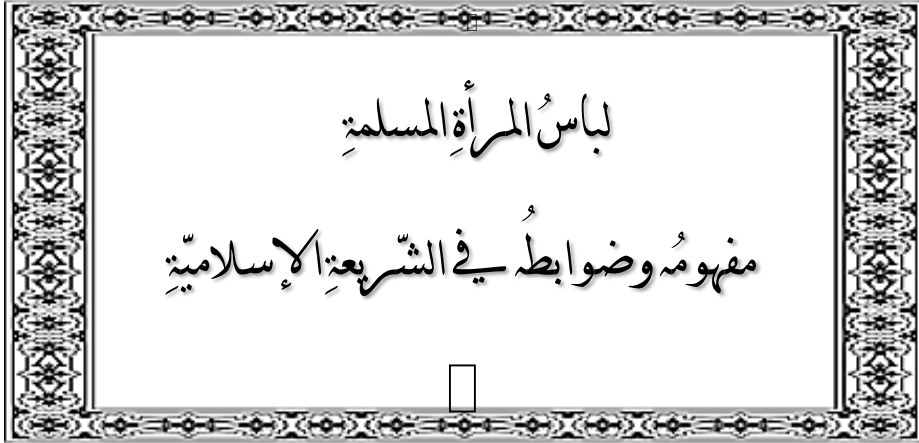 لباسُ المرأةِ المسلمةِ
مفهومُه وضوابطُه في الشّريعةِ الإسلاميّةِ